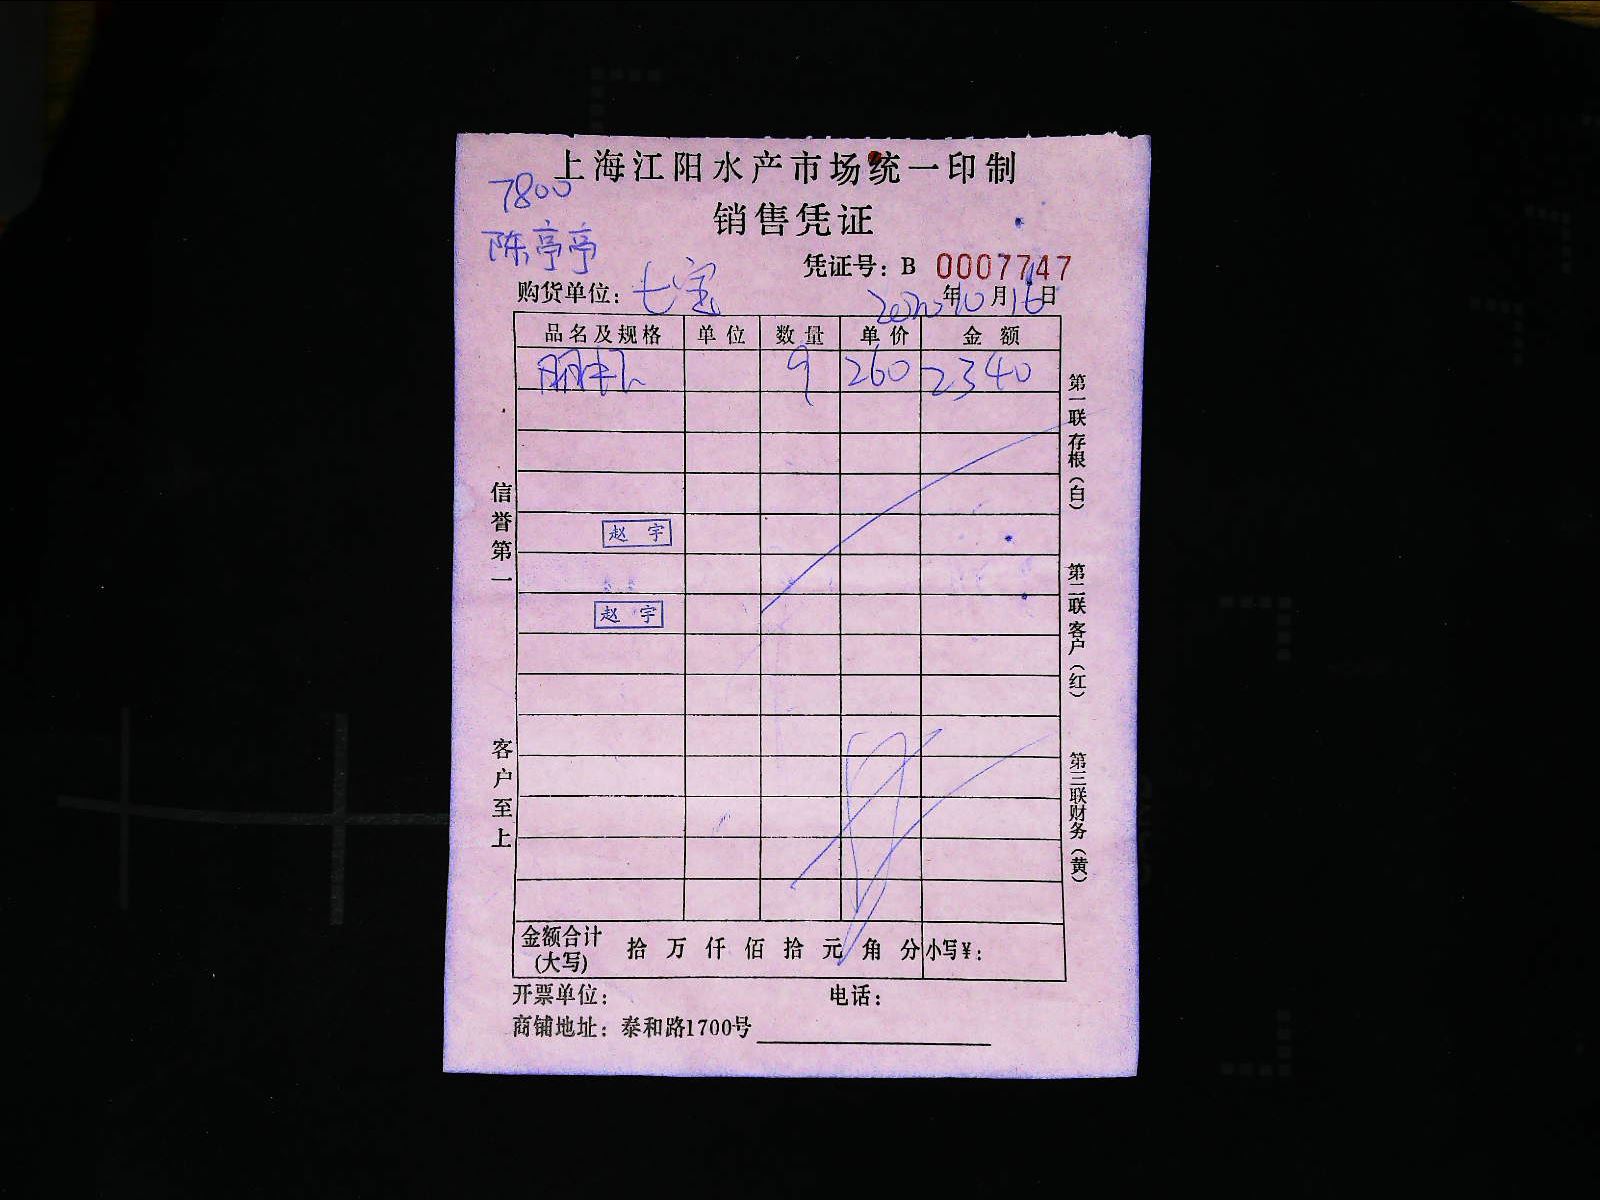 上海江阳水产市场统一印制
7800
销售凭证
陈亭亭
凭证号：B 0007747
购货单位：七宝
2020年10月16日
品名及规格 单位 数量 单价 金额
9 260 2340
赵 宇
赵 宇
金额合计(大写) 拾 万 仟 佰 拾 元 角 分 小写¥：
开票单位： 电话：
商铺地址：泰和路1700号
信誉第一
客户至上
第一联存根（白）
第二联客户（红）
第三联财务（黄）